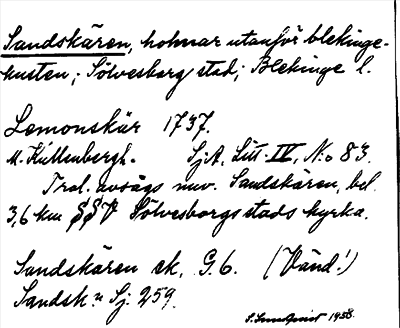 Sandskären, holmar utanför blekinge-
kusten; Sölvesborg stad; Blekinge l.
Lemonskär 1737.
M. Küllenbergh. SjA, Litt. IV, No 83.
Trol. avsågs nuv. Sandskären, bel.
3,6 km SSV Sölvesborgs stads kyrka.
Sandskären ek. G. 6. (Vänd!)
Sandsk:n Sj. 259.
S. Lundqvist 1958.